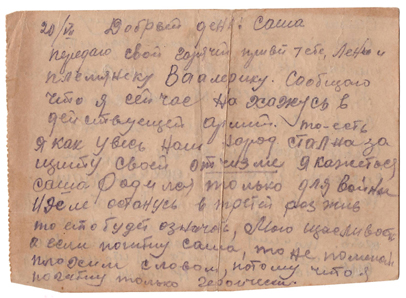 20/VII Добрый день: Саша
передаю свой горячий привет тебе, Лены и
племянеку Ваалерику. Сообщаю
что я сейчас нахажусь в
действующей армии. то-есть
я как увесь наш народ стал на за
щиту своей отчизне я кажеться
саша Родился только для войны
и если останусь в третий раз жив
то ето будет означать, мою щасливость
а если погибну саша, то не поминай
плохим словом, потому что я
погибну только геройски.